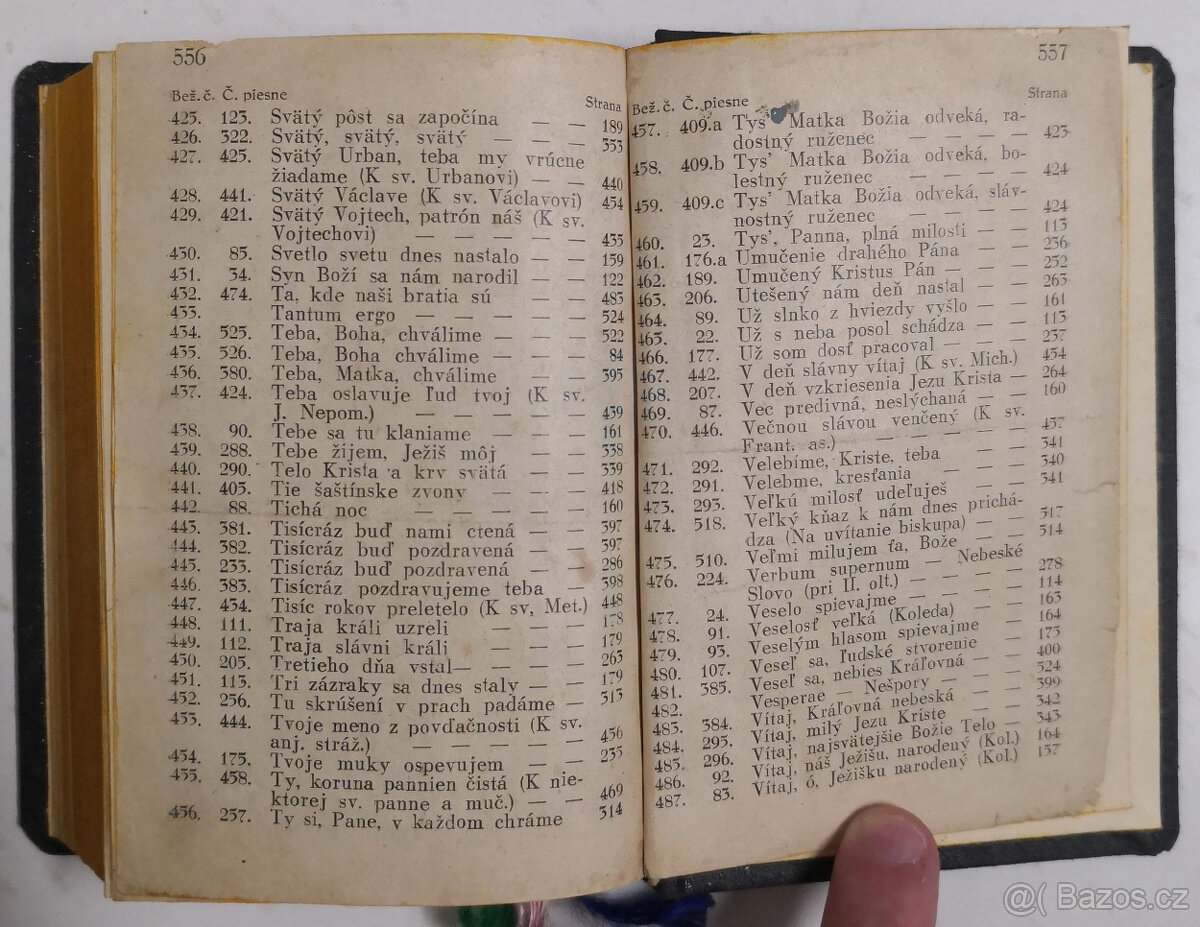 556
Bež. č. Č. piesne Strana
425. 123. Svätý pôst sa započína — — 189
426. 322. Svätý, svätý, svätý — — — 353
427. 425. Svätý Urban, teba my vrúcne
žiadame (K sv. Urbanovi) — — 440
428. 441. Svätý Václave (K sv. Václavovi) 454
429. 421. Svätý Vojtech, patrón náš (K sv.
Vojtechovi) — — — — — 435
430. 85. Svetlo svetu dnes nastalo — — 159
431. 34. Syn Boží sa nám narodil — — 122
432. 474. Ta, kde naši bratia sú — — 483
433. Tantum ergo — — — — 524
434. 525. Teba, Boha, chválime — — — 522
435. 526. Teba, Boha chválime — — — 84
436. 380. Teba, Matka, chválime — — 395
437. 424. Teba oslavuje ľud tvoj (K sv.
J. Nepom.) — — — — — 439
438. 90. Tebe sa tu klaniame — — — 161
439. 288. Tebe žijem, Ježiš môj — — 338
440. 290. Telo Krista a krv svätá — — 339
441. 405. Tie šaštínske zvony — — — 418
442. 88. Tichá noc — — — — — 160
443. 381. Tisícráz buď nami ctená — — 397
444. 382. Tisícráz buď pozdravená — — 397
445. 233. Tisícráz buď pozdravená — — 286
446. 383. Tisícráz pozdravujeme teba — 398
447. 434. Tisíc rokov preletelo (K sv, Met.) 448
448. 111. Traja králi uzreli — — — 178
449. 112. Traja slávni králi — — — 179
450. 205. Tretieho dňa vstal — — — — 263
451. 113. Tri zázraky sa dnes staly — — 179
452. 256. Tu skrúšení v prach padáme — 313
453. 444. Tvoje meno z povďačnosti (K sv.
anj. stráž.) — — — — — 456
454. 175. Tvoje muky ospevujem — — 235
455. 458. Ty, koruna pannien čistá (K nie-
ktorej sv. panne a muč.) — — 469
456. 257. Ty si, Pane, v každom chráme 314
557
Bež. č. Č. piesne Strana
457. 409.a Tys' Matka Božia odveká, ra-
dostný ruženec — — — — 423
458. 409.b Tys' Matka Božia odveká, bo-
lestný ruženec — — — — 424
459. 409.c Tys' Matka Božia odveká, sláv-
nostný ruženec — — — — 424
460. 23. Tys', Panna, plná milosti — — 113
461. 176.a Umučenie drahého Pána — — 236
462. 189. Umučený Kristus Pán — — — 252
463. 206. Utešený nám deň nastal — — 263
464. 89. Už slnko z hviezdy vyšlo — — 161
465. 22. Už s neba posol schádza — — 113
466. 177. Už som dosť pracoval — — — 237
467. 442. V deň slávny vítaj (K sv. Mich.) 454
468. 207. V deň vzkriesenia Jezu Krista — 264
469. 87. Vec predivná, neslýchaná — — 160
470. 446. Večnou slávou venčený (K sv.
Frant. as.) — — — — — 457
471. 292. Velebíme, Kriste, teba — — 341
472. 291. Velebme, kresťania — — — 340
473. 293. Veľkú milosť udeľuješ — — 341
474. 518. Veľký kňaz k nám dnes prichá-
dza (Na uvítanie biskupa) — — 517
475. 510. Veľmi milujem ťa, Bože — — 514
476. 224. Verbum supernum — Nebeské
Slovo (pri II. olt.) — — — — 278
477. 24. Veselo spievajme — — — — 114
478. 91. Veselosť veľká (Koleda) — — 163
479. 93. Veselým hlasom spievajme — 164
480. 107. Veseľ sa, ľudské stvorenie — 175
481. 385. Veseľ sa, nebies Kráľovná — — 400
482. Vesperae — Nešpory — — — 524
483. 384. Vítaj, Kráľovná nebeská — — 399
484. 295. Vítaj, milý Jezu Kriste — — 342
485. 296. Vítaj, najsvätejšie Božie Telo — 343
486. 92. Vítaj, náš Ježišu, narodený (Kol.) 164
487. 83. Vítaj, ó, Ježišku narodený (Kol.) 157
@( Bazos.cz